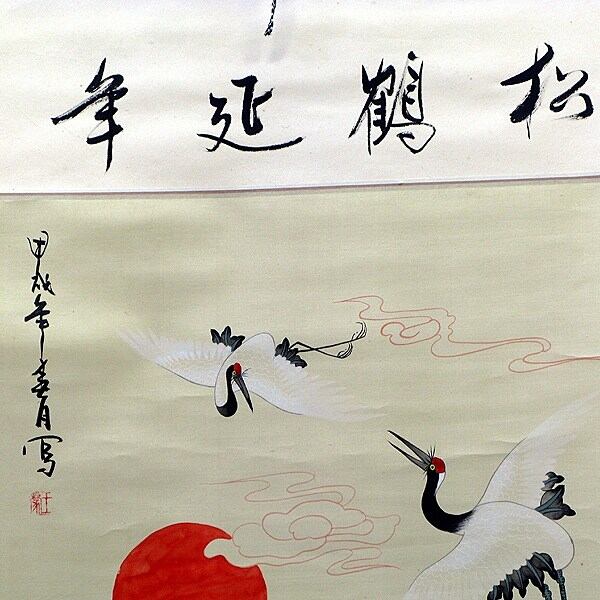 松鹤延年
甲戌年春月写